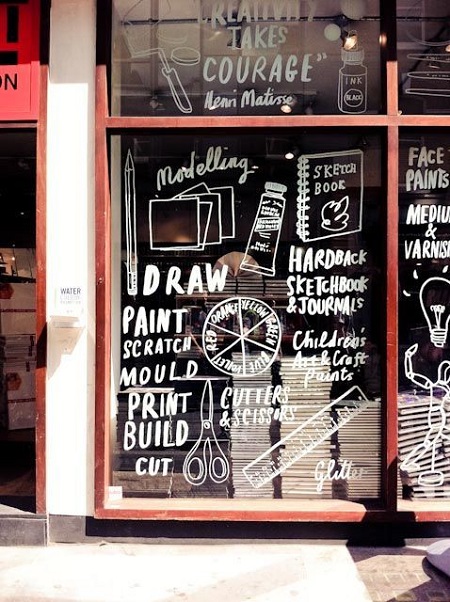 CREATIVITY
TAKES
COURAGE"
Henri Matisse
INK
BLACK
T
ON
Modelling
SKETCH
BOOK
DRAW
PAINT
SCRATCH
MOULD
PRINT
BUILD
CUT
RED ORANGE YELLOW GREEN BLUE VIOLET
CUTTERS
& SCISSORS
HARDBACK
SKETCHBOOK
& JOURNALS
Childrens
Art & Craft
paints
Glitter
FACE
PAINTS
MEDIU
&
VARNISH
WATER